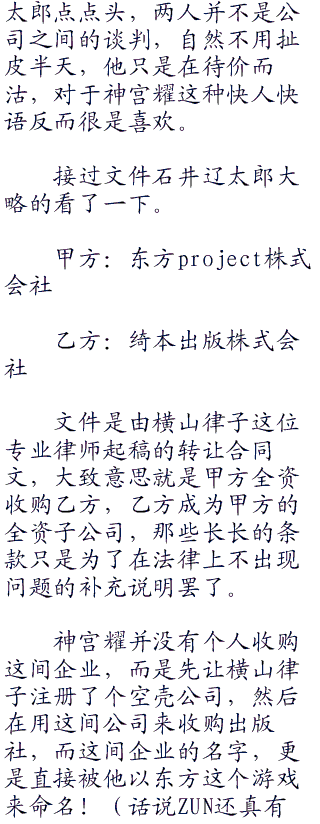 太郎点点头，两人并不是公
司之间的谈判，自然不用扯
皮半天，他只是在待价而
沽，对于神宫耀这种快人快
语反而很是喜欢。
接过文件石井辽太郎大
略的看了一下。
甲方：东方project株式
会社
乙方：绮本出版株式会
社
文件是由横山律子这位
专业律师起稿的转让合同
文，大致意思就是甲方全资
收购乙方，乙方成为甲方的
全资子公司，那些长长的条
款只是为了在法律上不出现
问题的补充说明罢了。
神宫耀并没有个人收购
这间企业，而是先让横山律
子注册了个空壳公司，然后
在用这间公司来收购出版
社，而这间企业的名字，更
是直接被他以东方这个游戏
来命名！（话说ZUN还真有